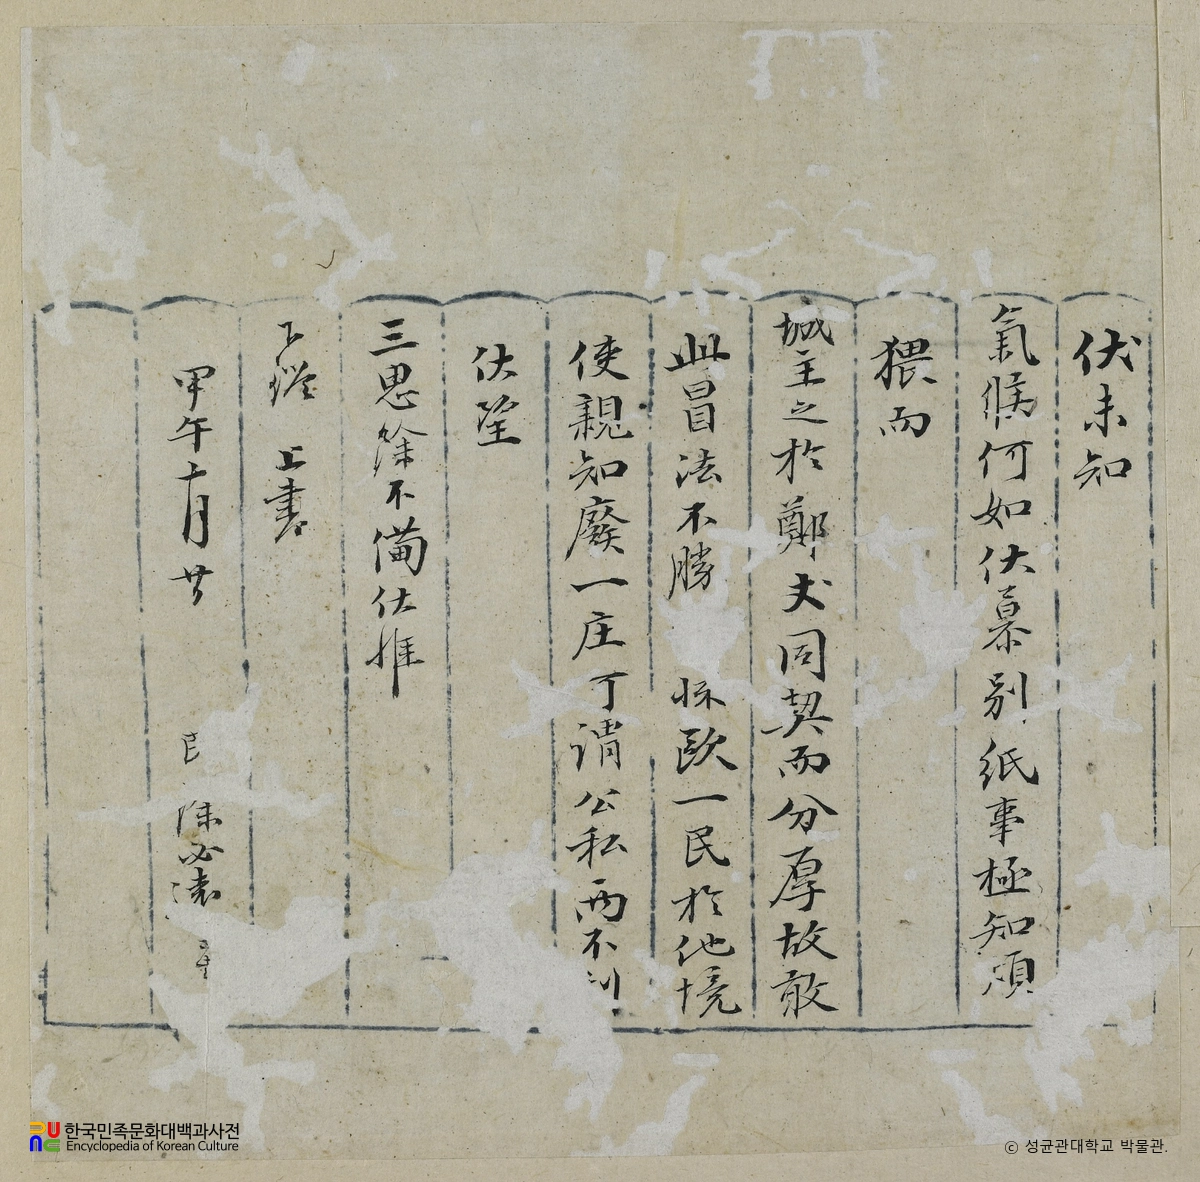 伏未知
氣候何如伏慕別紙事極知煩
猥而
城主之於鄭丈同契而分厚故敢
此冒法不勝 歐一民於他境
使親知廢一庄可謂公私兩不利
伏望
三思餘不備伏惟
下鑑 上書
甲午十月廿
民 陳必遠
한국민족문화대백과사전
Encyclopedia of Korean Culture
ⓒ 성균관대학교 박물관.